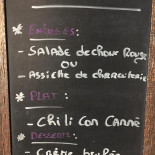 * ENTRÉES:
- SALADE de chou Rouge
OU
- ASSIETTE de charcuterie
* PLAT:
- Chili Con Carné
* DESSERTS:
- CRÈME brûlée